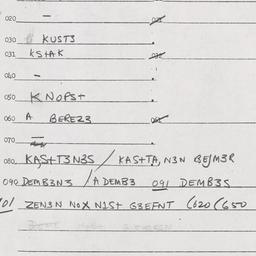 020 —
030 KUST3
031 KSTAK
040 —
050 KNOPST
060 A BEREZ3
070 —
080 KAST3N3S / KASTTA, N3N BEJM3R
090 DEMB3N3 / A DEMB3 091 DEMB3S
ZEN3N NOX N1ST G3EFNT (620 (650